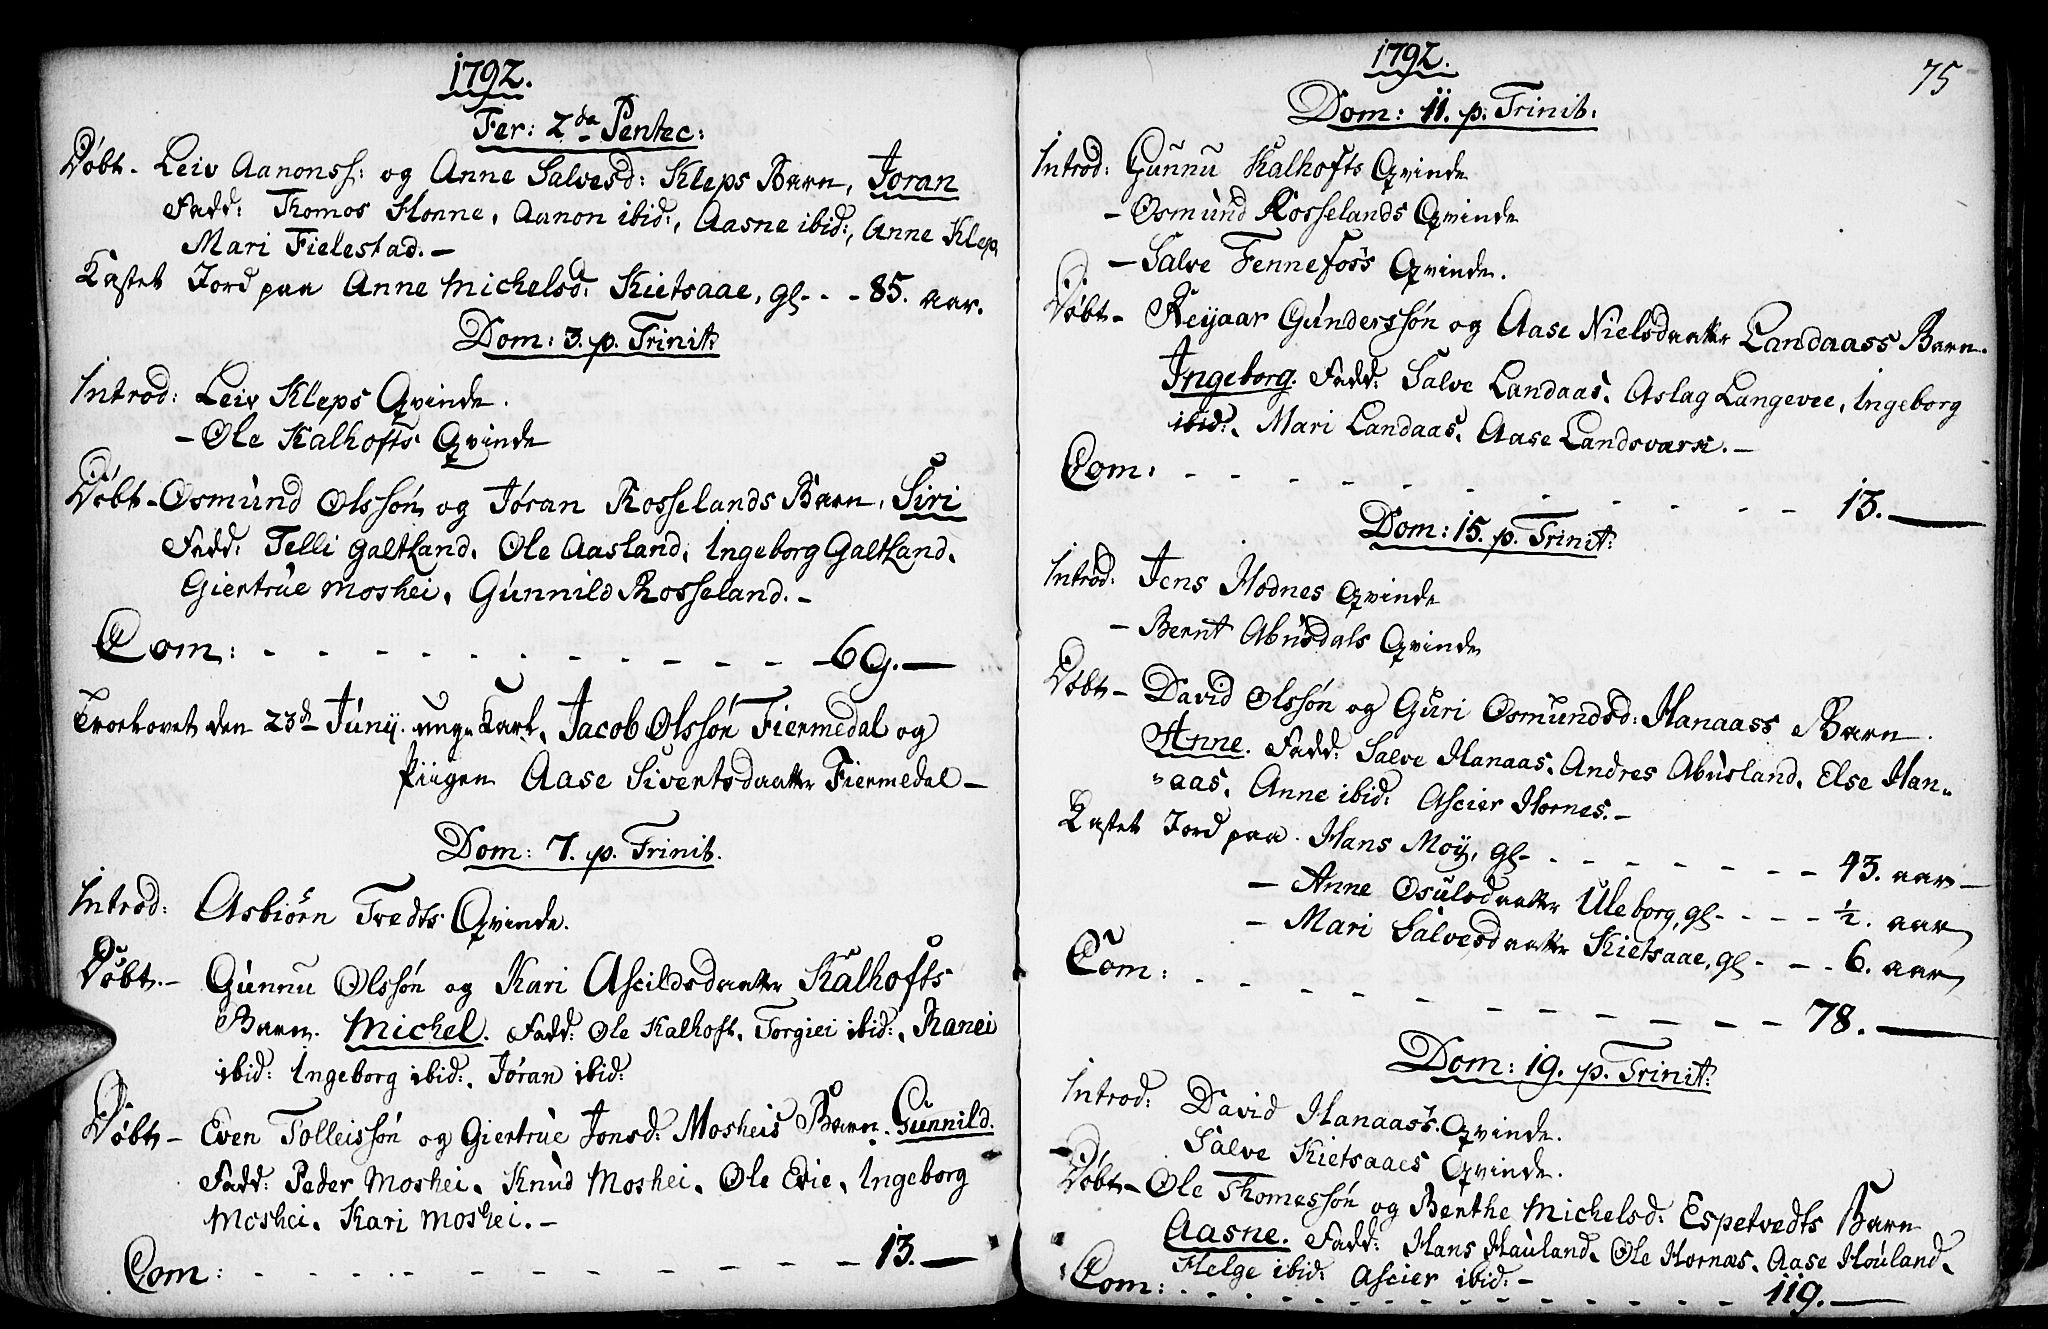 1792.
Fer: 2da Pentec:
Døbt - Leiv Aanonss: og Anne Salvesd: Kleps Barn, Joran
Fadd: Thomos Honne, Aanon ibid:, Aasne ibid:, Anne Klep,
Mari Fielestad. -
Kastet Jord paa Anne Michelsd: Kietsaae, gl - - - 85. aar.
Dom: 3. p. Trinit:
Introd: Leiv Kleps Qvinde.
- Ole Kalhofts Qvinde
Døbt - Osmund Olssøn og Jøran Rosselands Barn, Siri
Fadd: Telli Galteland, Ole Aasland, Ingeborg Galteland,
Giertrue Moshei, Gunnild Rosseland. -
Com: - - - - - - - - - - - - 69. —
Troelovet den 23de Junij. unge Karl, Jacob Olssøn Fiermedal og
Piigen Aase Sivertsdaatter Fiermedal -
Dom: 7. p. Trinit.
Introd: Asbiørn Tvedts Qvinde.
Døbt. - Gunnu Olssøn og Kari Ascildsdaatter Kalhofts
Barn. Michel. Fadd: Ole Kalhoft, Torgiei ibid:, Ranei
ibid: Ingeborg ibid:, Jøran ibid:
Døbt - Even Tolleissøn og Giertrue Jonsd: Mosheis Barn. Gunnild.
Fadd: Peder Moshei, Knud Moshei, Ole Evie, Ingeborg
Moshei, Kari Moshei. -
Com: - - - - - - - - - - - - 13. —
1792.
75
Dom: 11. p. Trinit:
Introd: Gunnu Kalhofts Qvinde
- Osmund Rosselands Qvinde
- Salve Fennefoss Qvinde.
Døbt - Reijaar Gunderssøn og Aase Nielsdaatter Landaass Barn.
Ingeborg. Fadd: Salve Landaas, Aslag Langevee, Ingeborg
ibid:, Mari Landaas, Aase Landsvark. -
Com: - - - - - - - - - - - - 13. —
Dom: 15. p. Trinit:
Introd: Jens Hodnes Qvinde
- Bernt Abusdals Qvinde
Døbt - David Olssøn og Guri Osmundsd: Hanaass Barn.
Anne. Fadd: Salve Hanaas, Andres Abusland, Else Han„
„aas, Anne ibid: Ascier Hornes. -
Kastet Jord paa Hans Moy, gl - - - - - - - 43. aar -
- Anne Osulsdaatter Uleborg, gl - - - - ½. aar
- Mari Salvesdaatter Kietsaae, gl - - - - 6. aar
Com: - - - - - - - - - - - - 78. —
Dom: 19. p. Trinit:
Introd: David Hanaass Qvinde.
Salve Kietsaaes Qvinde.
Døbt - Ole Thomessøn og Berthe Michelsd: Espetvedts Barn
Aasne. Fadd: Hans Hauland, Ole Hornæs, Aase Houland,
Helge ibid: Ascier ibid: -
Com: - - - - - - - - - - - - 119. —